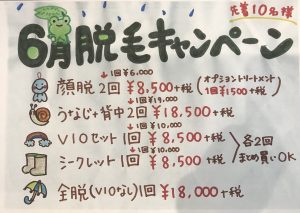 先着10名様
6月脱毛キャンペーン
↓1回¥6,000
顔脱 2回 ¥8,500+税 (オプショントリートメント 1回¥1500+税)
↓1回¥19,000
うなじ+背中 2回 ¥18,500+税
↓1回¥10,000
VIOセット 1回 ¥8,500+税
↓1回¥10,000
シークレット 1回 ¥8,500+税
各2回
まとめ買いOK
全脱(VIOなし)1回 ¥18,000+税